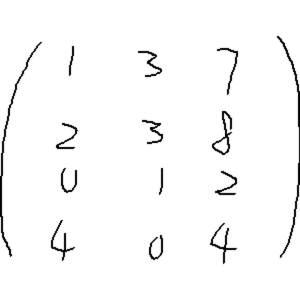 1 3 7
2 3 8
0 1 2
4 0 4